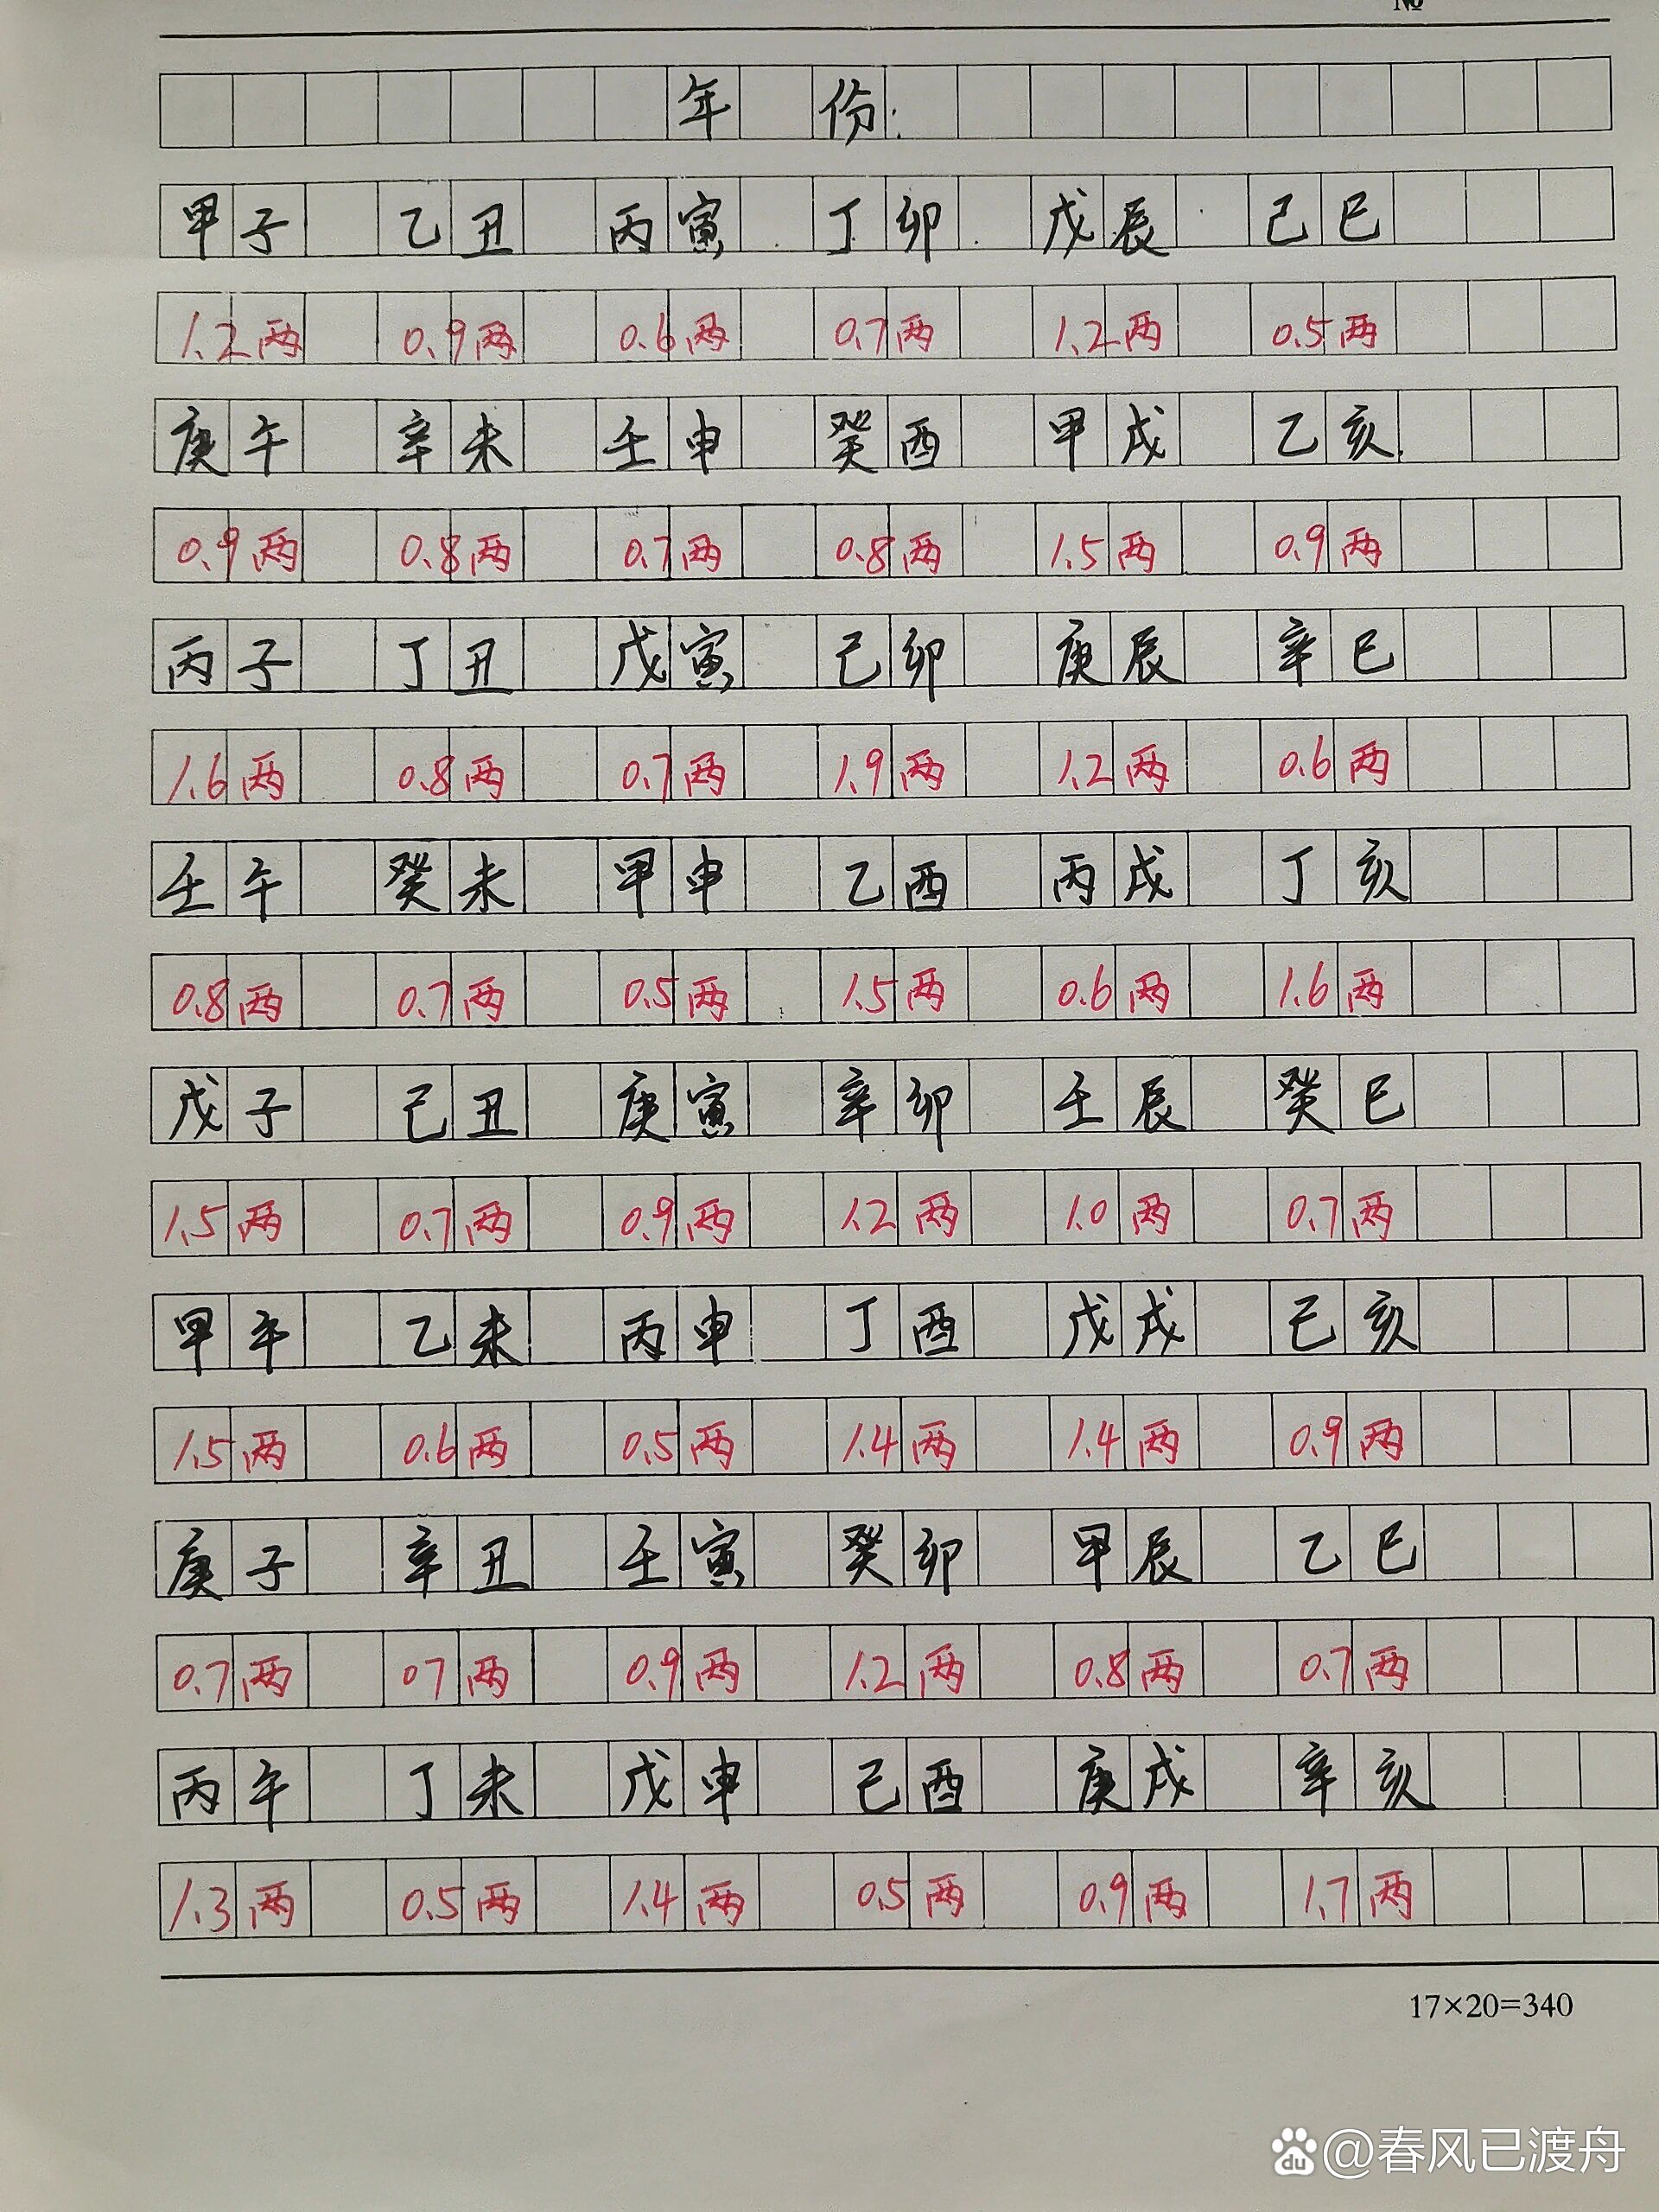 №
年份:
甲子 乙丑 丙寅 丁卯 戊辰 己巳
1.2两 0.9两 0.6两 0.7两 1.2两 0.5两
庚午 辛未 壬申 癸酉 甲戌 乙亥
0.9两 0.8两 0.7两 0.8两 1.5两 0.9两
丙子 丁丑 戊寅 己卯 庚辰 辛巳
1.6两 0.8两 0.7两 1.9两 1.2两 0.6两
壬午 癸未 甲申 乙酉 丙戌 丁亥
0.8两 0.7两 0.5两 1.5两 0.6两 1.6两
戊子 己丑 庚寅 辛卯 壬辰 癸巳
1.5两 0.7两 0.9两 1.2两 1.0两 0.7两
甲午 乙未 丙申 丁酉 戊戌 己亥
1.5两 0.6两 0.5两 1.4两 1.4两 0.9两
庚子 辛丑 壬寅 癸卯 甲辰 乙巳
0.7两 07两 0.9两 1.2两 0.8两 0.7两
丙午 丁未 戊申 己酉 庚戌 辛亥
1.3两 0.5两 1.4两 0.5两 0.9两 1.7两
17×20=340
du @春风已渡舟